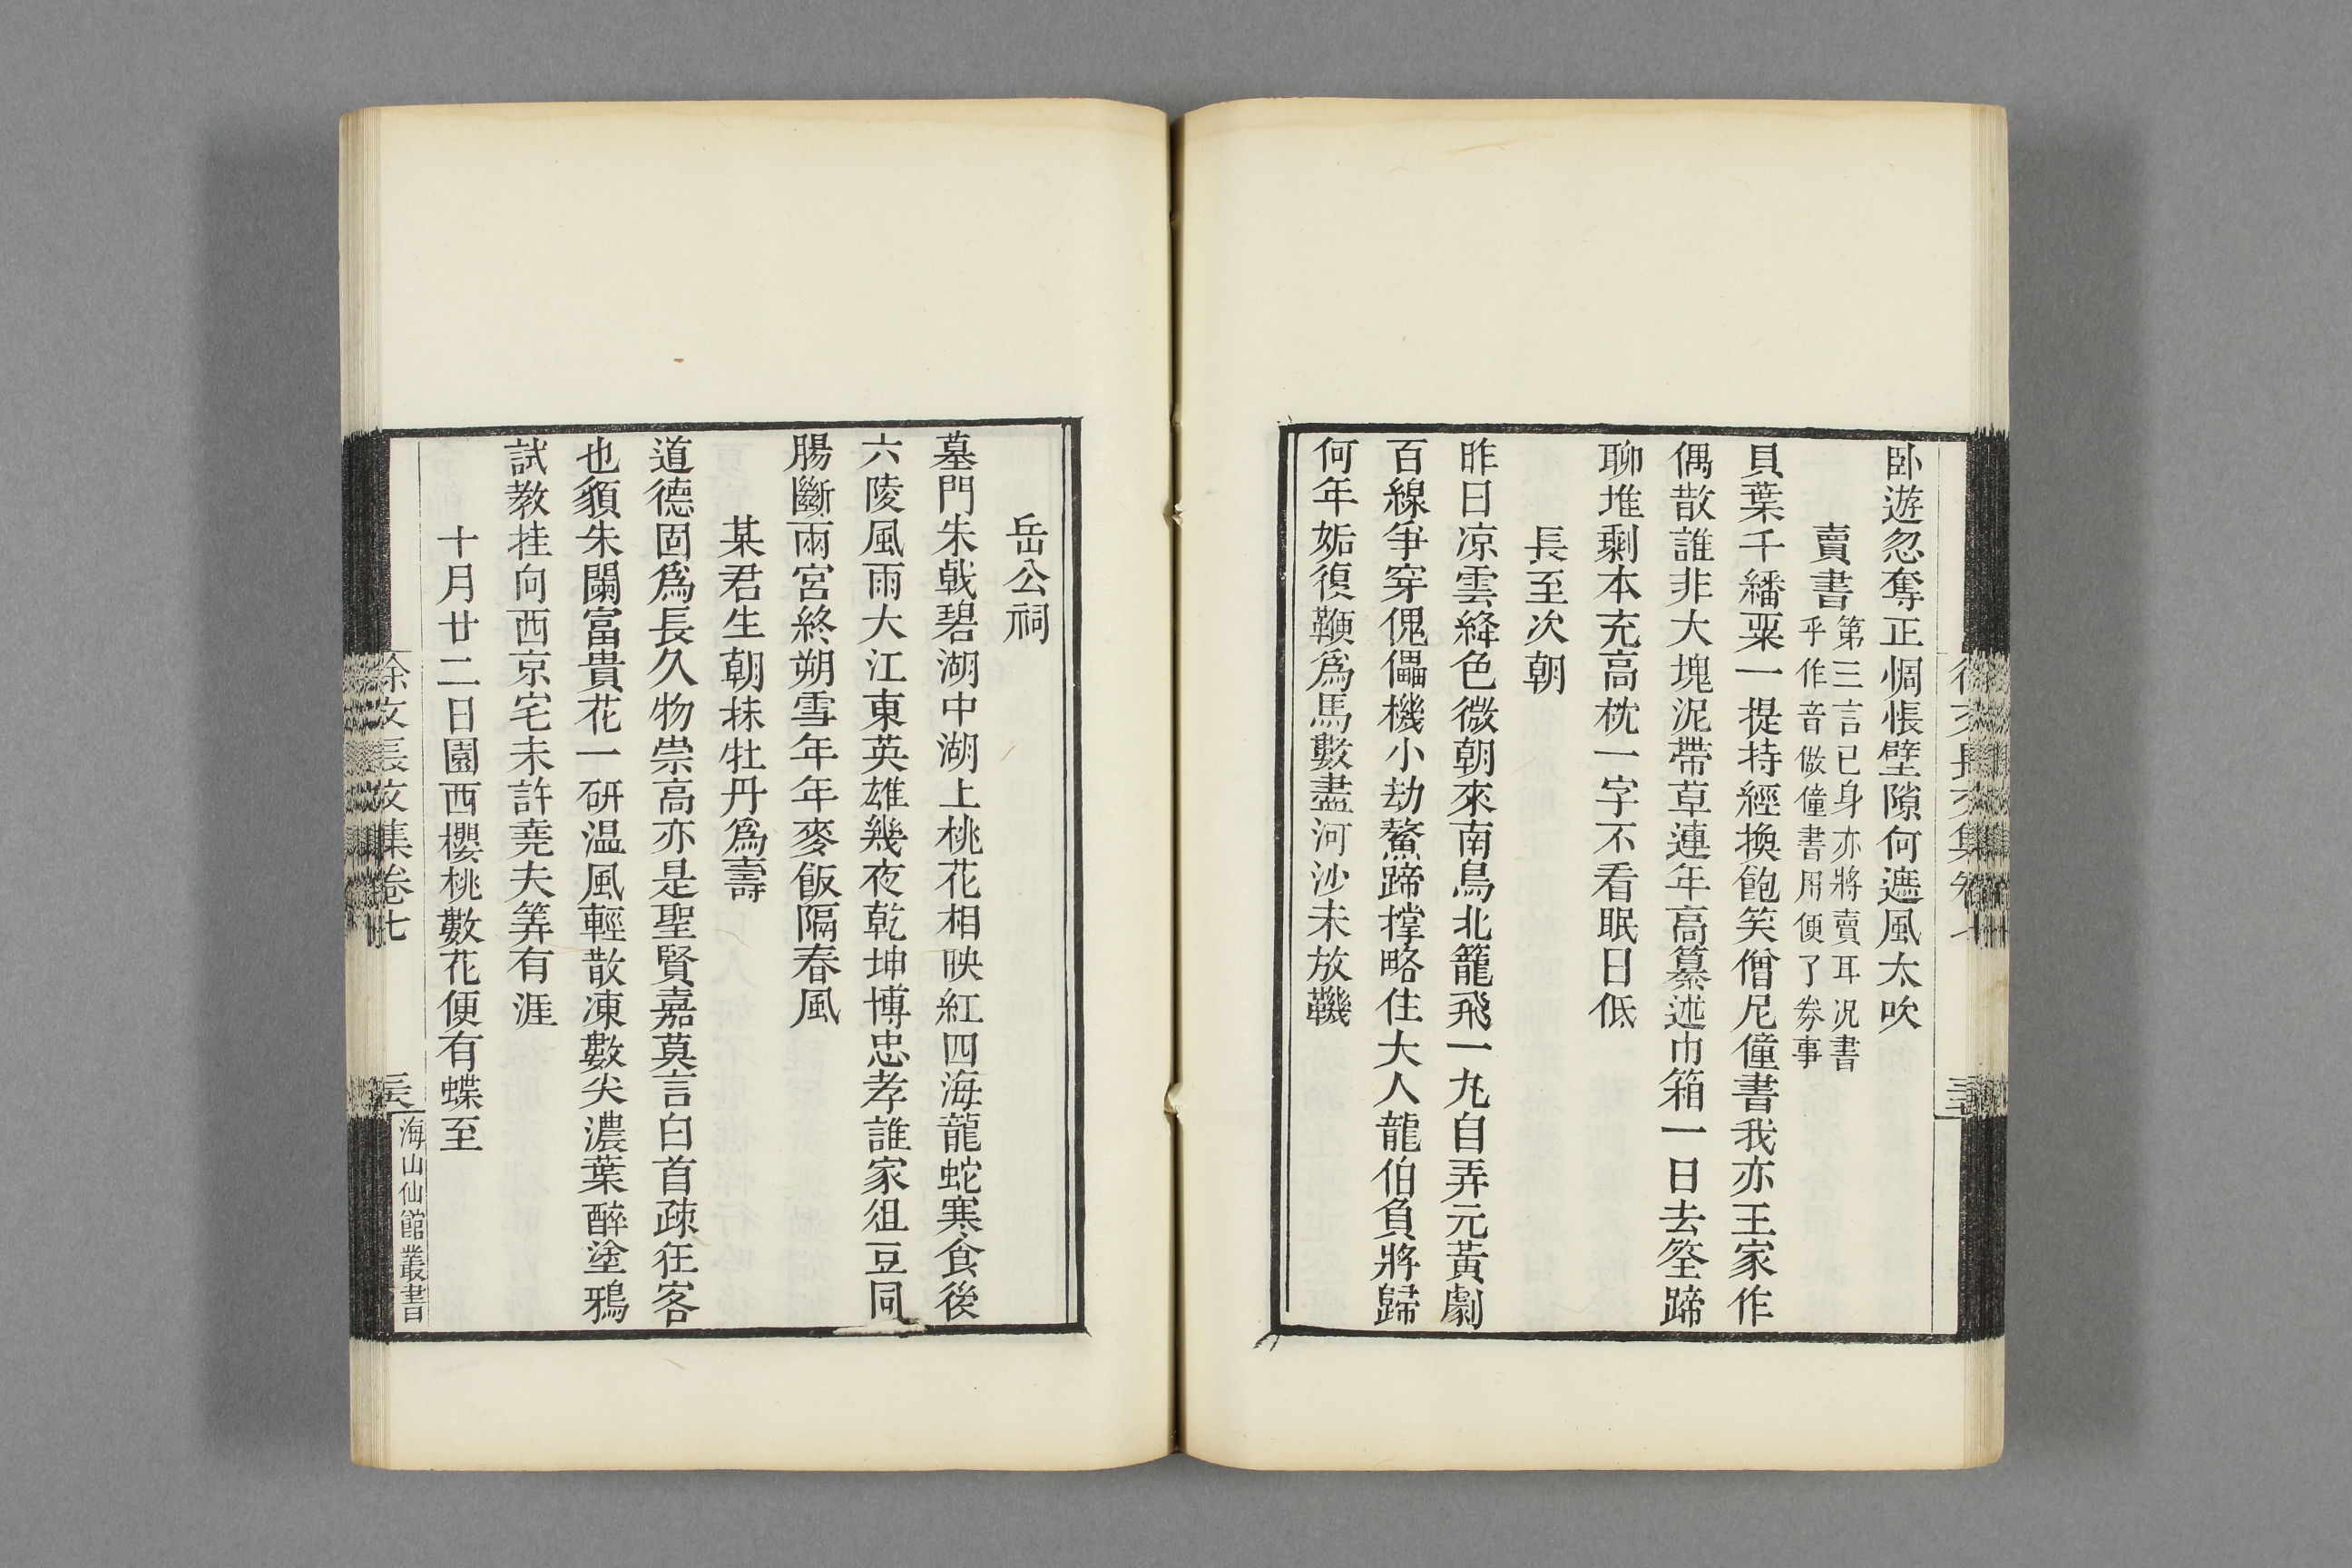 卧遊忽奪正惆悵壁隙何遮風太吹
賣書
第三言已身亦將賣耳况書
乎作音做僮書用便了劵事
貝葉千繙粟一提持經換飽笑僧尼僮書我亦王家作
偶散誰非大塊泥帶草連年高纂述巾箱一日去筌蹄
聊堆剩本充高枕一字不看眠日低
長至次朝
昨日凉雲絳色微朝來南鳥北籠飛一九自弄元黃劇
百線爭穿傀儡機小劫鰲蹄撑略住大人龍伯負將歸
何年姤復鞭爲馬數盡河沙未放鞿
岳公祠
墓門朱戟碧湖中湖上桃花相映紅四海龍蛇寒食後
六陵風雨大江東英雄幾夜乾坤博忠孝誰家俎豆同
腸斷兩宮終朔雪年年麥飯隔春風
某君生朝抹牡丹爲壽
道德固爲長久物崇高亦是聖賢嘉莫言白首疎狂客
也貌朱闌富貴花一硏温風輕散凍數尖濃葉醉塗鴉
試教挂向西京宅未許堯夫筭有涯
十月廿二日園西櫻桃數花便有蝶至
徐文長文集卷七
海山仙館叢書